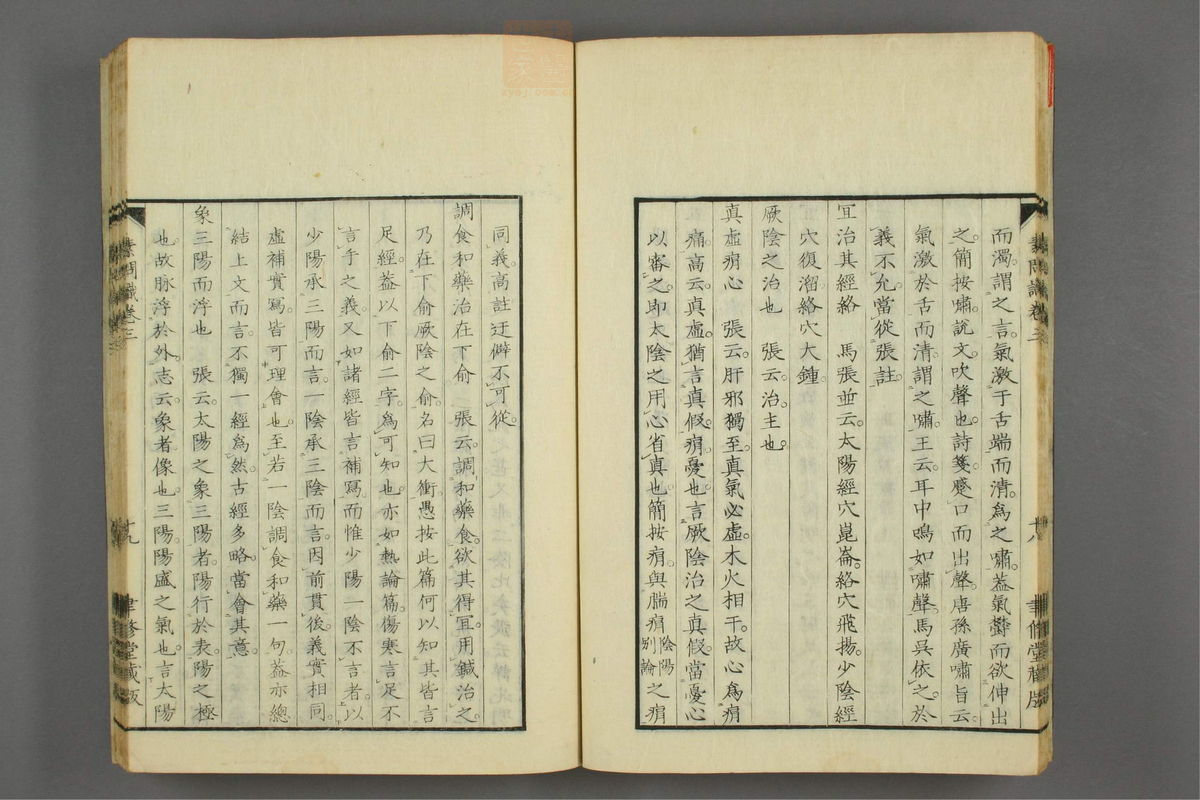 而濁。謂之言。氣激于舌端而清。爲之嘯。蓋氣鬱而欲伸出
之。簡按嘯。說文。吹聲也。詩箋。蹙口而出聲。唐孫廣嘯旨云。
氣激於舌而清。謂之嘯。王云。耳中鳴如嘯聲。馬吳依之。於
義不允。當從張註。
宜治其經絡　馬張並云。太陽經穴崑崙。絡穴飛揚。少陰經
穴復溜。絡穴大鍾。
厥陰之治也　張云。治。主也。
眞虛㾓心　張云。肝邪獨至。眞氣必虛。木火相干。故心爲㾓
痛。高云。眞虛。猶言眞假。㾓。憂也。言厥陰治之眞假。當憂心
以審之。即太陰之用心省眞也。簡按㾓。與腨㾓陰陽別論之㾓
同義。高註迂僻。不可從。
調食和藥治在下俞　張云。調和藥食。欲其得宜。用鍼治之。
乃在下俞。厥陰之俞。名曰大衝。愚按此篇。何以知其皆言
足經。蓋以下俞二字。爲可知也。亦如熱論篇傷寒言足不
言手之義。又如諸經皆言補寫。而惟少陽一陰不言者。以
少陽承三陽而言。一陰承三陰而言。因前貫後。義實相同。
虛補實寫。皆可理會也。至若一陰調食和藥一句。蓋亦總
結上文而言。不獨一經爲然。古經多略。當會其意。
象三陽而浮也　張云。太陽之象三陽者。陽行於表。陽之極
也。故脉浮於外。志云。象者。像也。三陽。陽盛之氣也。言太陽
素問識卷三
十八
聿修堂藏版
素問識卷三
十九
聿修堂藏版